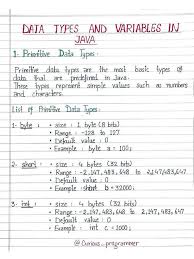 DATA TYPES AND VARIABLES IN
JAVA
1- Primitive Data Types:
Primitive data types are the most basic types of
data that are predefined in Java.
These types represent simple values such as numbers
and characters.
List of Primitive Data Types:
1- byte : • size : 1 byte (8 bits)
• Range : -128 to 127
• Default value : 0
• Example : byte a = 100;
2- short : • size : 4 bytes (32 bits)
• Range : -2,147,483,648 to 2,147,483,647
• Default value : 0
• Example : short b = 32000;
3- int : • size : 4 bytes (32 bits)
• Range : -2,147,483,648 to 2,147,483,647
• Default value : 0
• Example : int c = 1000;
@ Curious_programmer